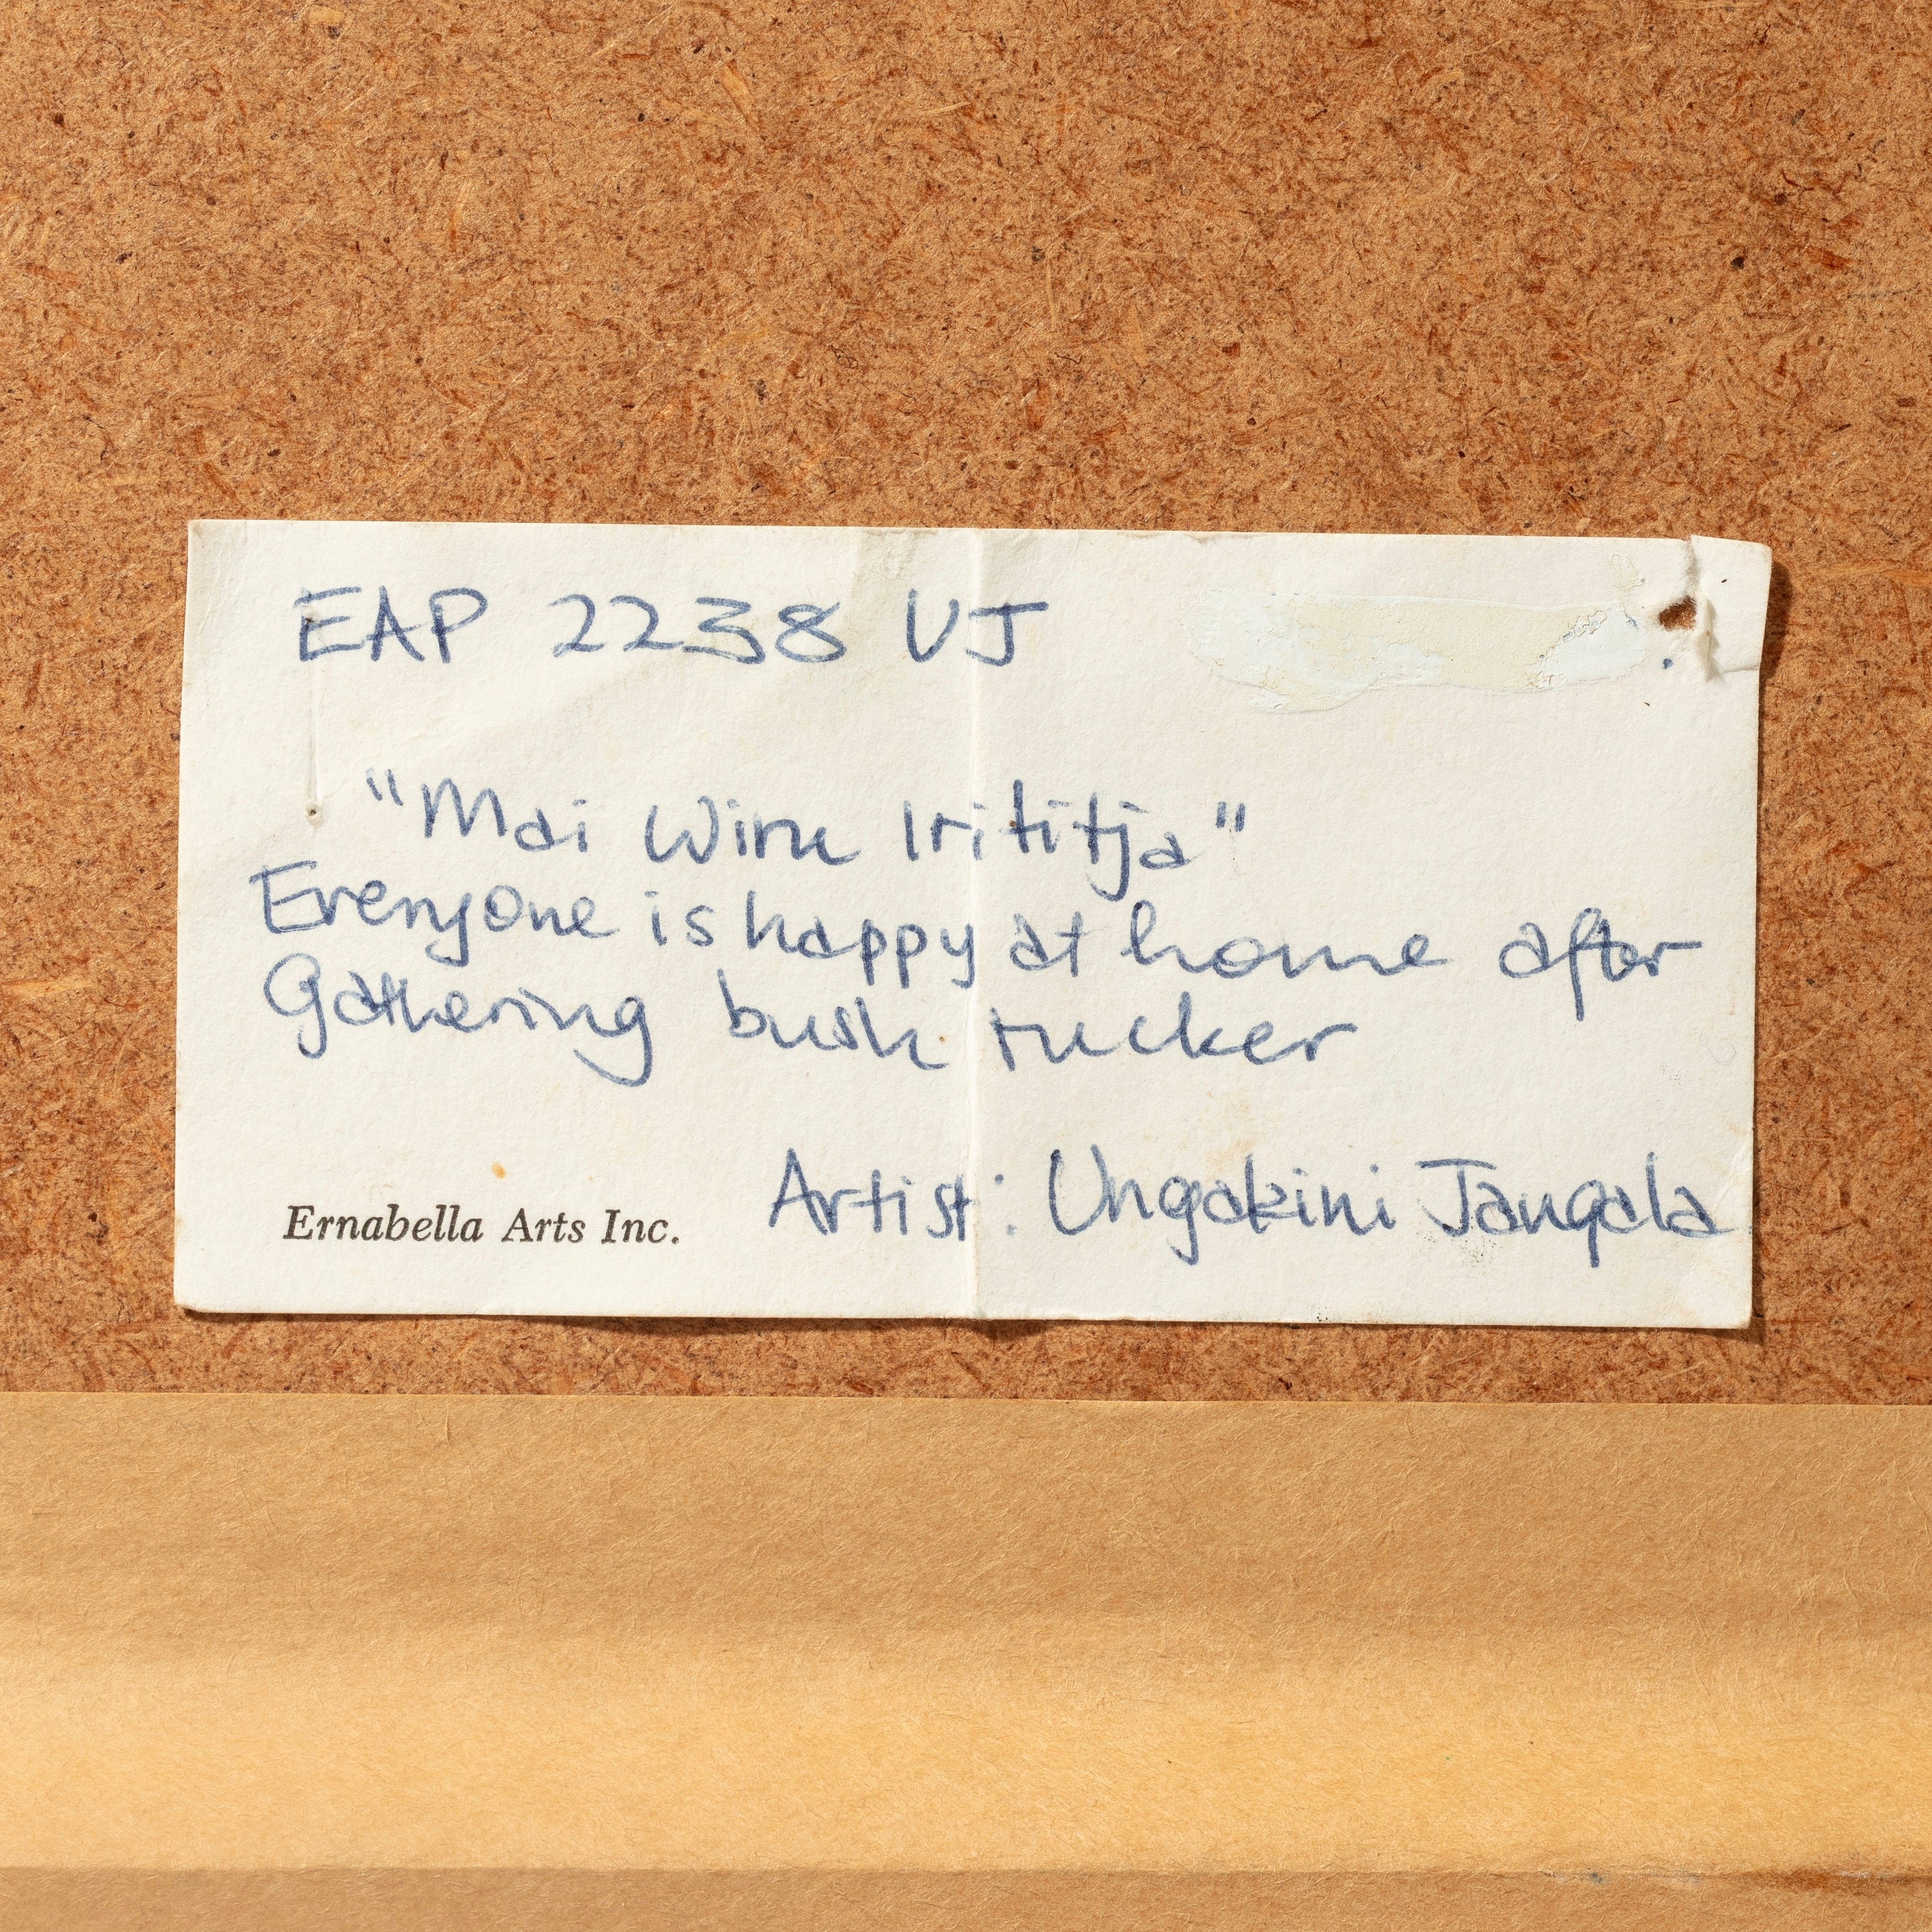 EAP 2238 UJ
"Mai Wiru Irititja"
Everyone is happy at home after
Gathering bush tucker
Artist: Ungakini Jangala
Ernabella Arts Inc.